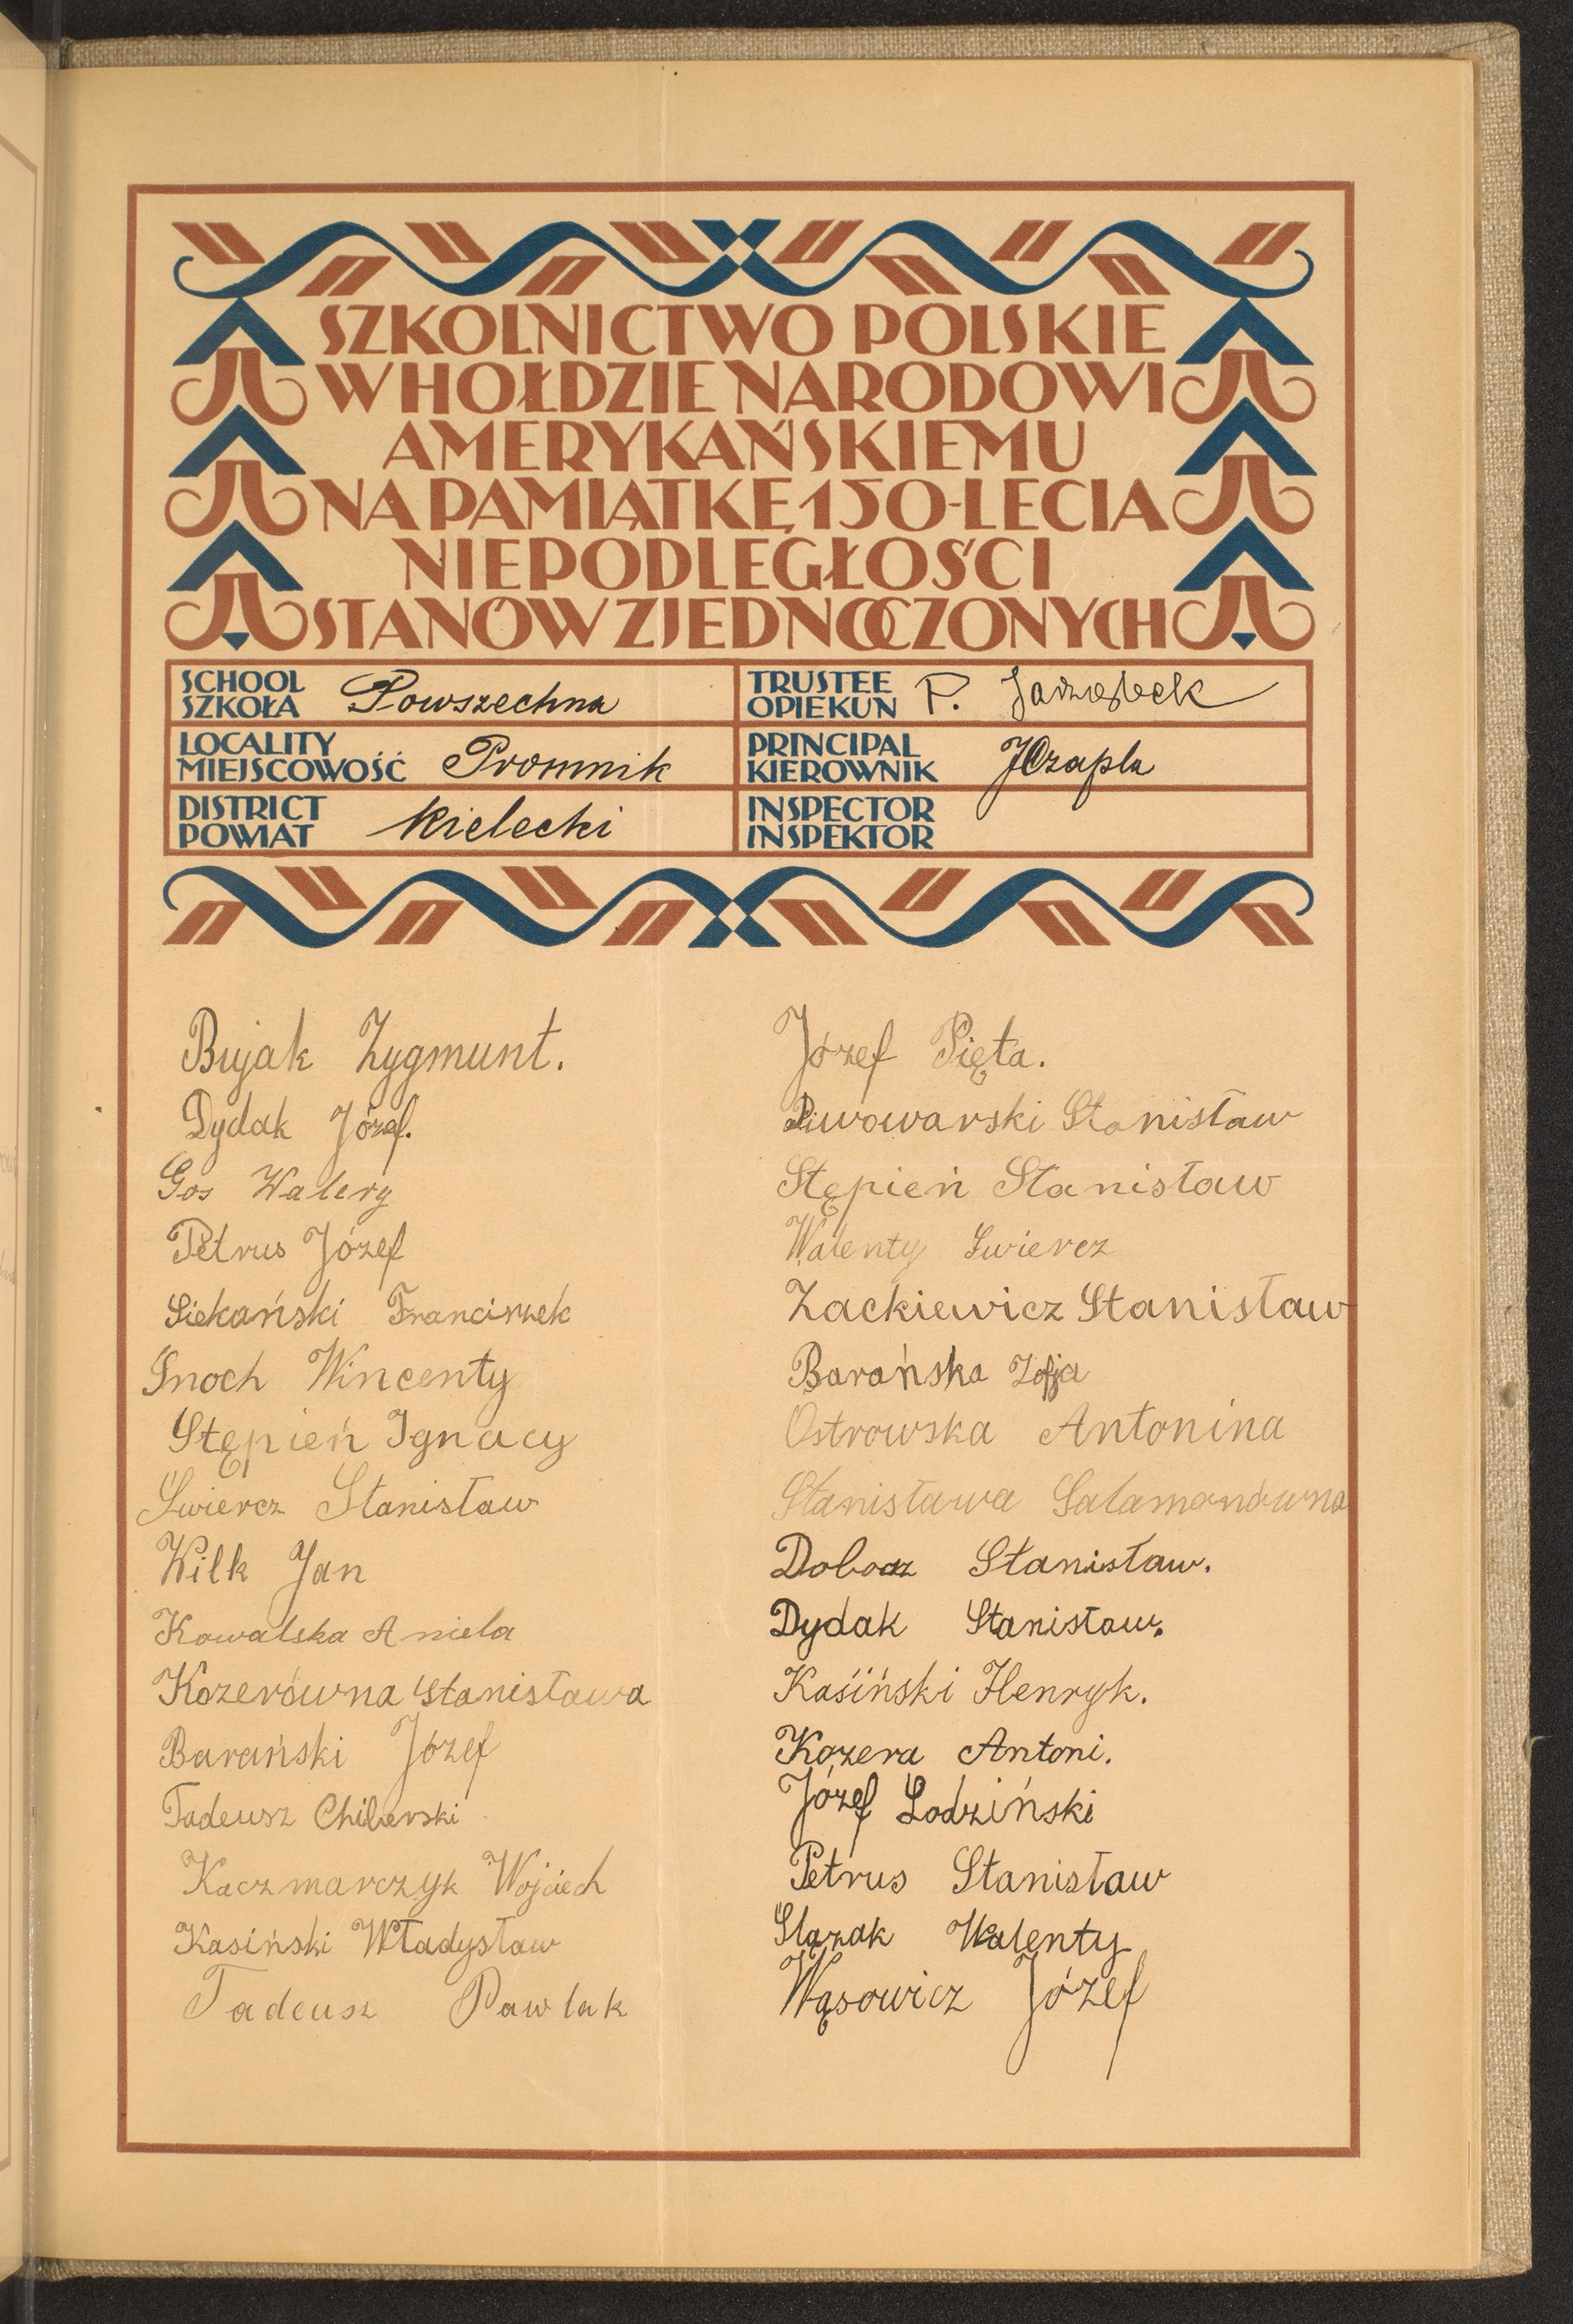 SZKOLNICTWO POLSKIE
W HOŁDZIE NARODOWI
AMERYKAŃSKIEMU
NA PAMIĄTKĘ 150-LECIA
NIEPODLEGŁOŚCI
STANÓW ZJEDNOCZONYCH
SCHOOL
SZKOŁA Powszechna
LOCALITY
MIEJSCOWOŚĆ Promnik
DISTRICT
POWIAT Kielecki
TRUSTEE
OPIEKUN P.
PRINCIPAL
KIEROWNIK JCzapla
INSPECTOR
INSPEKTOR
Bujak Zygmunt.
Dydak Józef.
Gos Walery
Petrus Józef
Siekański Franciszek
Snoch Wincenty
Stępień Ignacy
Swiercz Stanisław
Wilk Jan
Kowalska Aniela
Kozerówna Stanisława
Barański Józef
Tadeusz Chiberski
Kaczmarczyk Wojciech
Kasiński Władysław
Tadeusz Pawlak
Józef Pięta.
Piwowarski Stanisław
Stępień Stanisław
Walenty Swiercz
Zackiewicz Stanisław
Barańska Zofja
Ostrowska Antonina
Stanisława Salamonówna
Stanisław.
Dydak Stanisław.
Kasiński Henryk.
Kozera Antoni.
Józef Lodziński
Petrus Stanisław
Ślązak Walenty
Wąsowicz Józef